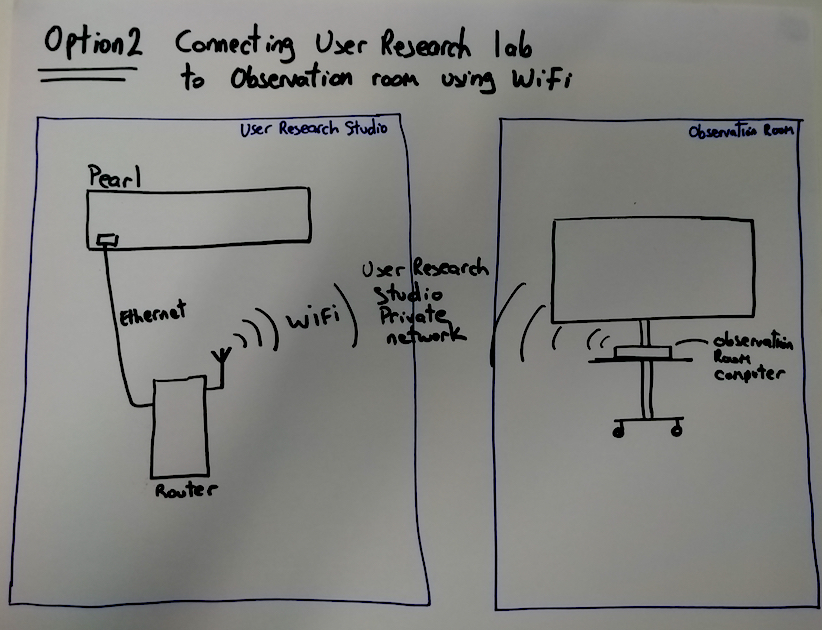 Option 2 Connecting User Research lab
to Observation room using WiFi
User Research Studio
Pearl
Ethernet
WiFi
Router
User Research
Studio
Private
network
Observation Room
observation
Room
computer